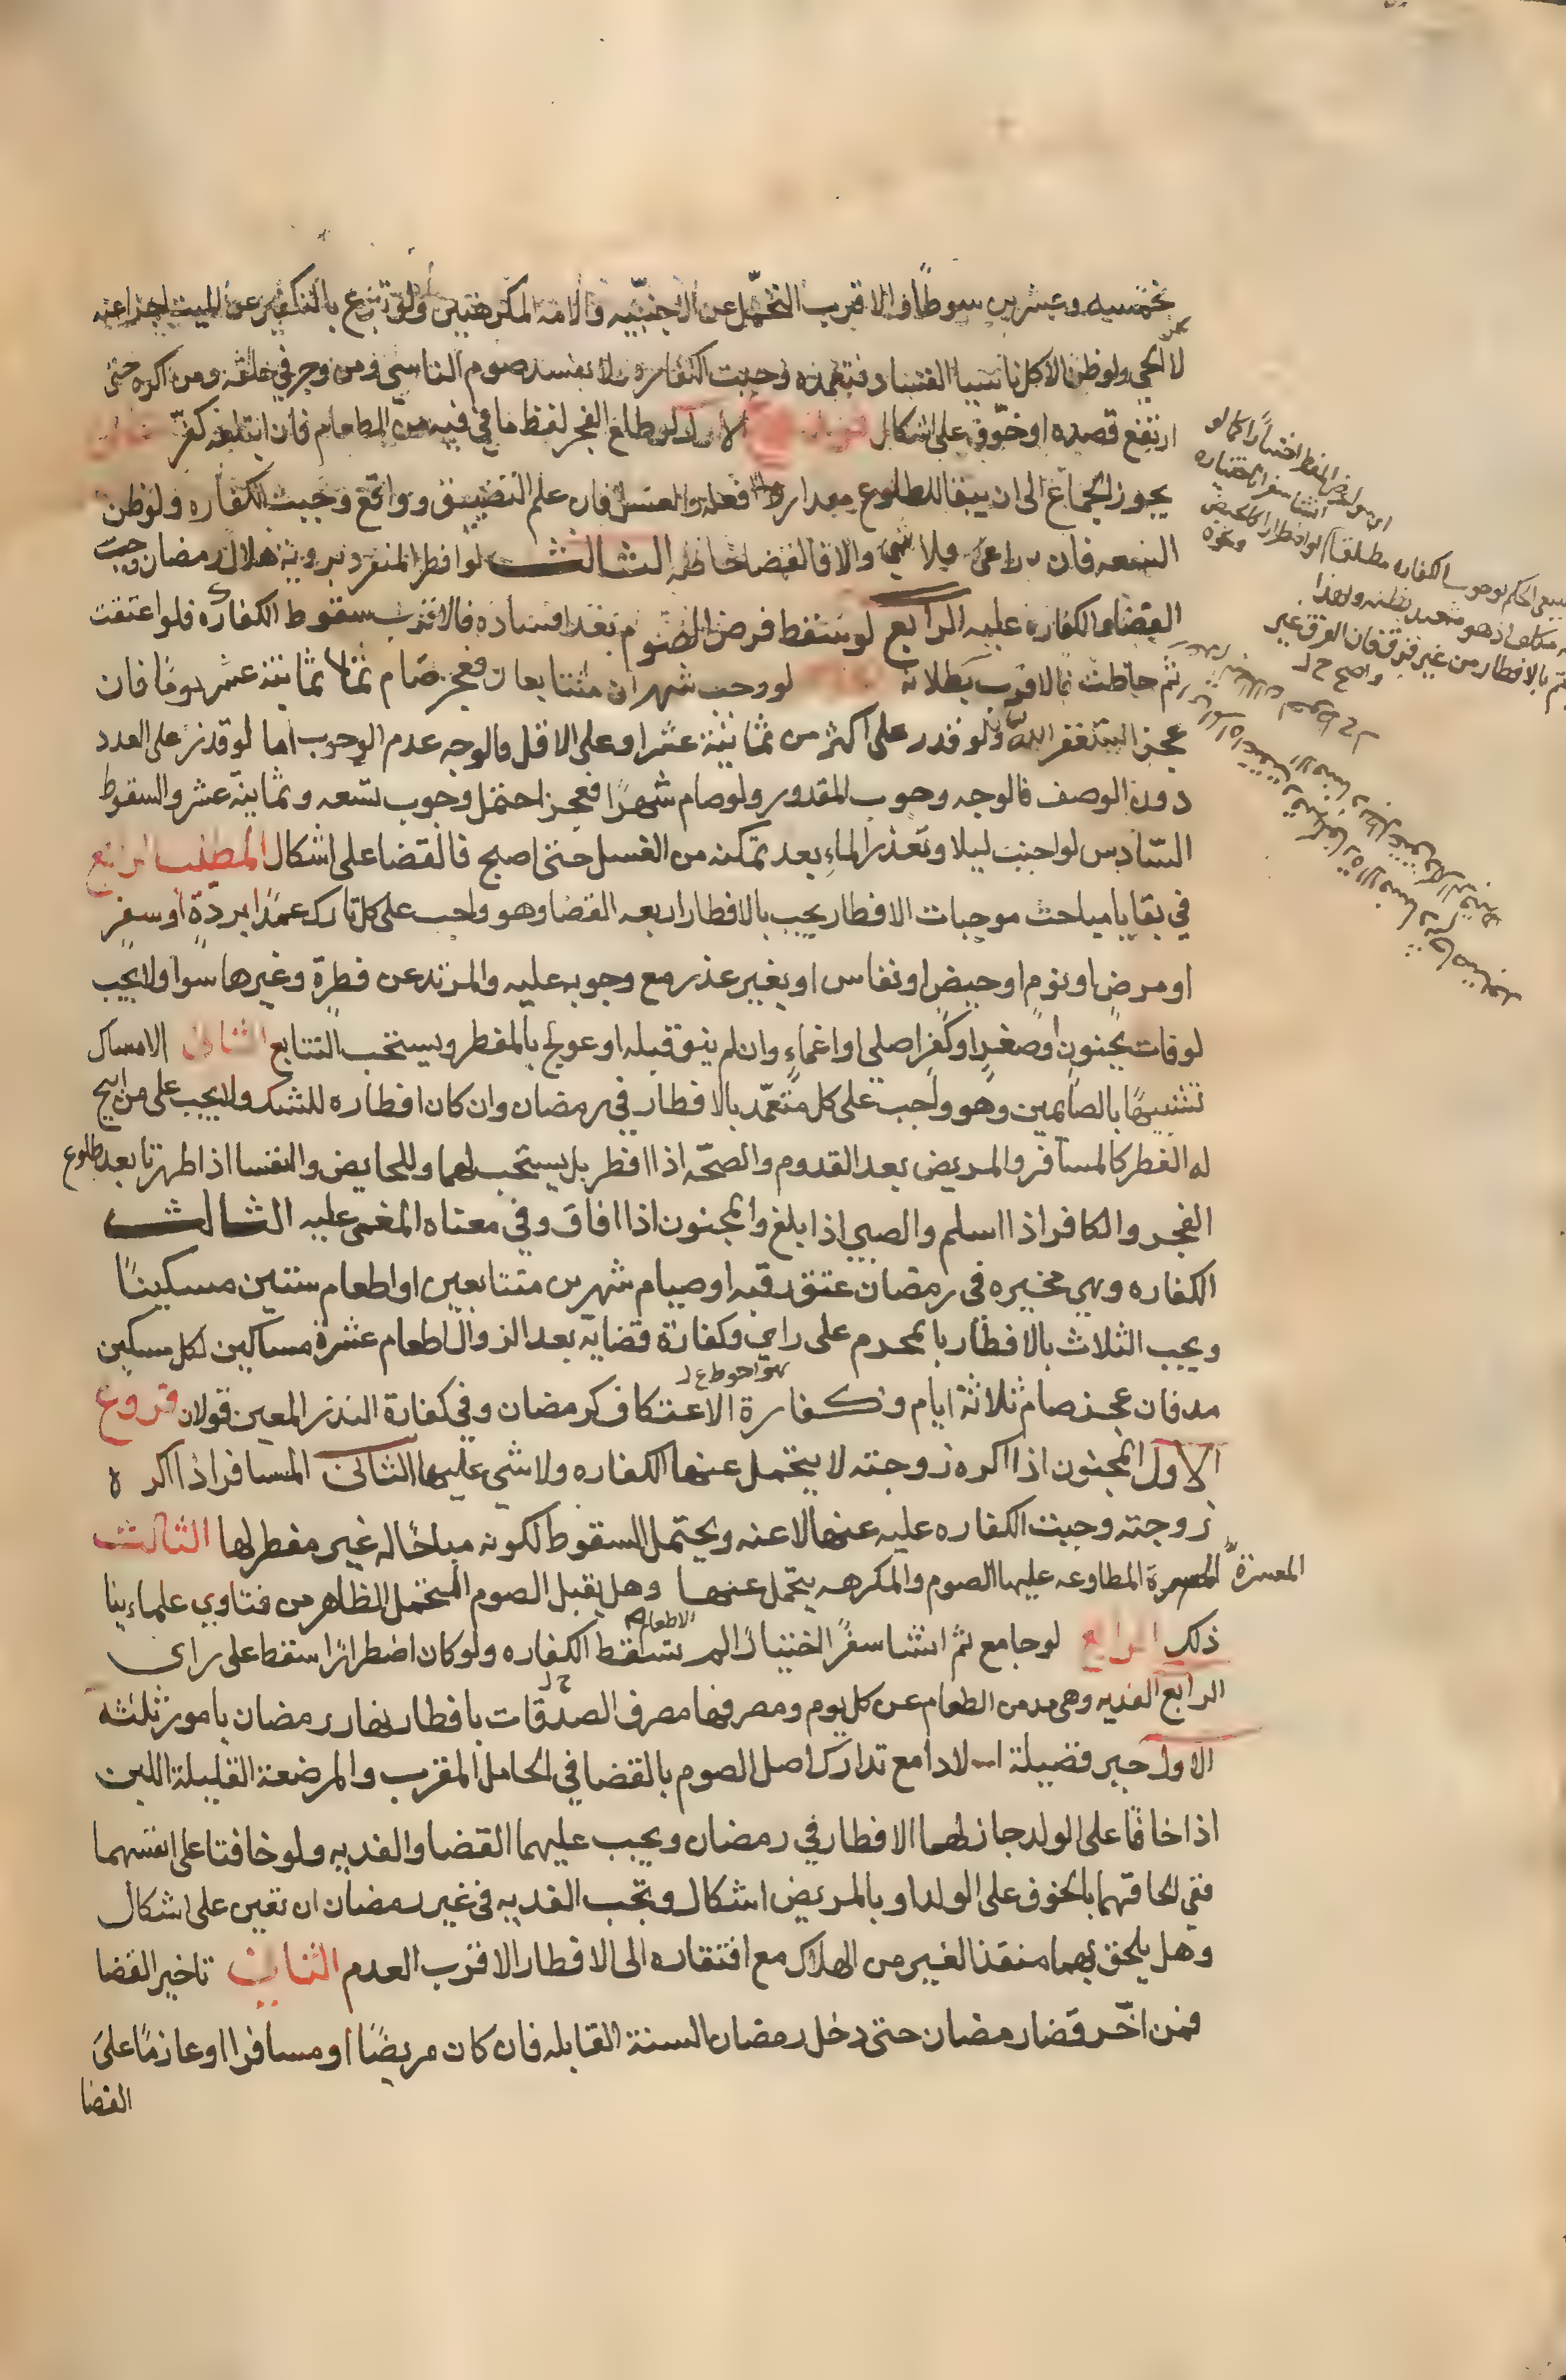 بخمسه وعشرين سوطا والاقرب التحمل عن الاجنبيه والامة المكرهتين ولو تبرع بالتكفير عن الميت اجزا عنه
لا الحي ولو ظن الاكل ناسيا الفساد فتعمده وجبت الكفاره ولا يفسد صوم الناسي ومن وجر في حلقه ومن اكره حتى
ارتفع قصده او خوف على اشكال الاول لو طلع الفجر لفظ ما في فيه من الطعام فان ابتلعه كفر
يجوز الجماع الى ان يبقا للطلوع مقدار فعله والغسل فان علم التضييق وواقع وجبت الكفاره ولو ظن
السعه فان راعى فلا شي والا فالقضا خاصه الثالث لو افطر المنفرد برويه هلال رمضان وجب
القضا والكفاره عليه الرابع لو سقط فرض الصوم بعد افساده فالاقرب سقوط الكفاره فلو اعتقت
ثم حاضت فالاقرب بطلانه لو وجب شهران متتابعان فعجز صام ثمانيه عشر يوما فان
عجز استغفر الله ولو قدر على اكثر من ثمانية عشر او على الاقل فالوجه عدم الوجوب اما لو قدر على العدد
دون الوصف فالوجه وجوب المقدور ولو صام شهرا فعجز احتمل وجوب تسعه وثمانيه عشر والسقوط
السادس لو اجنب ليلا وتعذر الماء بعد تمكنه من الغسل حتى اصبح فالقضا على اشكال المطلب الرابع
في بقايا مباحث موجبات الافطار يجب بالافطار اربعه القضا وهو واجب على كل تارك عمدا بردة او سفر
او مرض او نوم او حيض او نفاس او بغير عذر مع وجوبه عليه والمرتد عن فطرة وغيرها سوا ولا يجب
لو فات بجنون او صغر او كفر اصلي او اغماء وان لم ينو قبله او عولج بالمفطر ويستحب التتابع الثاني الامساك
تشبيها بالصايمين وهو واجب على كل متعمد بالافطار في رمضان وان كان افطاره للشك ولا يجب على من ابيح
له الفطر كالمسافر والمريض بعد القدوم والصحه اذا افطر بل يستحب لهما وللحايض والنفسا اذا طهرتا بعد طلوع
الفجر والكافر اذا اسلم والصبي اذا بلغ والمجنون اذا افاق وفي معناه المغمى عليه الثالث
الكفاره وهي مخيره في رمضان عتق رقبه او صيام شهرين متتابعين او اطعام ستين مسكينا
ويجب الثلاث بالافطار بالمحرم على راي وكفارة قضايه بعد الزوال اطعام عشرة مساكين لكل مسكين
هو احوط ع ل
مد فان عجز صام ثلاثة ايام وكفارة الاعتكاف كرمضان وفي كفارة النذر المعين قولان فروع
الاول المجنون اذا اكره زوجته لا يتحمل عنها الكفاره ولا شي عليها الثاني المسافر اذا اكره
زوجته وجبت الكفاره عليه عنها لا عنه ويحتمل السقوط لكونه مباحا له غير مفطر لها الثالث
المعسرة المطاوعه عليها الصوم والمكرهه يتحمل عنها وهل يقبل الصوم التحمل الظاهر من فتاوي علماءينا
المعسرة
ذلك الرابع لو جامع ثم انشا سفرا اختيارا لم تسقط الكفاره ولو كان اضطرارا سقط على راى
الرابع الفديه وهي مد من الطعام عن كل يوم ومصرفها مصرف الصدقات بافطار نهار رمضان بامور ثلثه
الاول جبر فضيلة الادا مع تدارك اصل الصوم بالقضا في الحامل المقرب والمرضعة القليلة اللبن
اذا خافتا على الولد جاز لهما الافطار في رمضان ويجب عليهما القضا والفديه ولو خافتا على انفسهما
ففي الحاقهما بالخوف على الولد او بالمريض اشكال وتجب الفديه في غير رمضان ان تعين على اشكال
وهل يلحق بهما منقذ الغير من الهلاك مع افتقاره الى الافطار الاقرب العدم الثاني تاخير القضا
فمن اخر قضا رمضان حتى دخل رمضان السنة القابله فان كان مريضا او مسافرا او عازما على
القضا